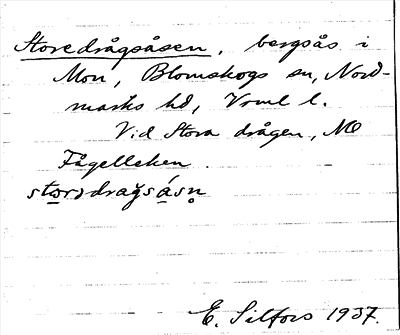 Storedrågsåsen, bergsås i
Mon, Blomskogs sn, Nord-
marks hd, Vrml l.
Vid Stora drågen, NO
Fågelleken.
storədragsásn̥
E. Silfors 1937.